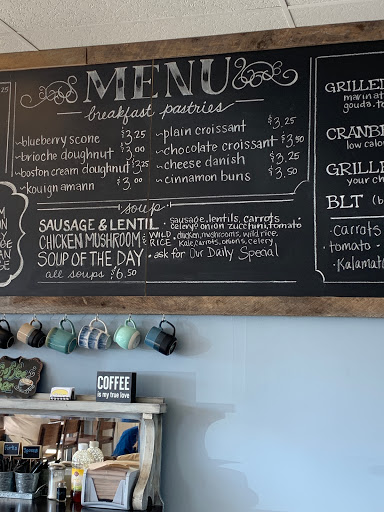 MENU
breakfast pastries
~blueberry scone $3.25
~brioche doughnut $3.00
~boston cream doughnut $3.25
~kouign amann $3.00
~plain croissant $3.25
~chocolate croissant $3.50
~cheese danish $3.25
~cinnamon buns $3.50
soup
SAUSAGE & LENTIL · sausage, lentils, carrots
celery, onion zucchini, tomato
CHICKEN MUSHROOM & WILD RICE · chicken, mushrooms, wild rice,
kale, carrots, onions, celery
SOUP OF THE DAY · ask for Our Daily Special
all soups $6.50
GRILLE
marinat
gouda, to
CRANBE
low calo
GRILLE
your ch
BLT (b
· carrots
tomato ·
· Kalamat
COFFEE
is my true love